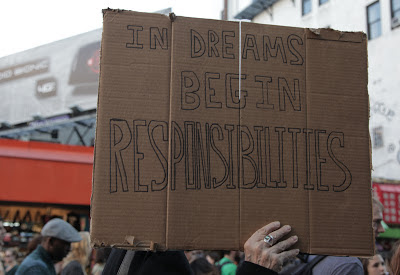 IN DREAMS
BEGIN
RESPONSIBILITIES